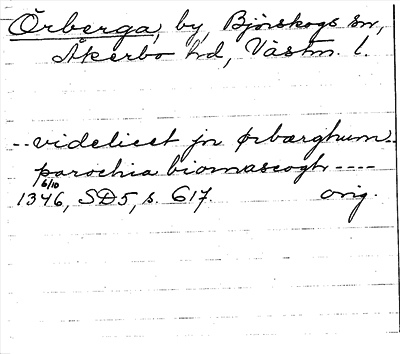 Örberga, by, Björskogs sn,
Åkerbo hd, Västm. l.
-- videlicet jn ørbærghum --
parochia biornascogh ----
6/10
1346, SD5, s. 617. orig.